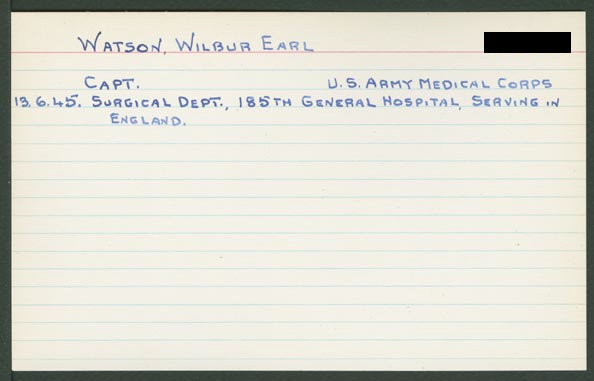 WATSON, WILBUR EARL
CAPT. U.S. ARMY MEDICAL CORPS
13.6.45. SURGICAL DEPT., 185TH GENERAL HOSPITAL, SERVING IN
ENGLAND.